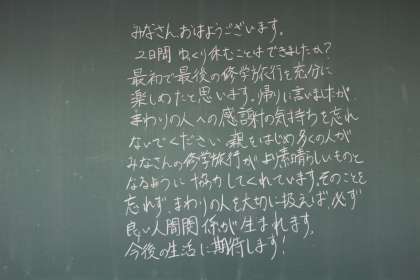 みなさんおはようございます。
2日間ゆっくり休むことはできましたか?
最初で最後の修学旅行を充分に
楽しめたと思います。帰りに言いましたが、
まわりの人への感謝の気持ちを忘れ
ないでください。親をはじめ多くの人が
みなさんの修学旅行がより素晴らしいものと
なるように協力してくれています。そのことを
忘れず、まわりの人を大切に扱えば、必ず
良い人間関係が生まれます。
今後の生活に期待します!